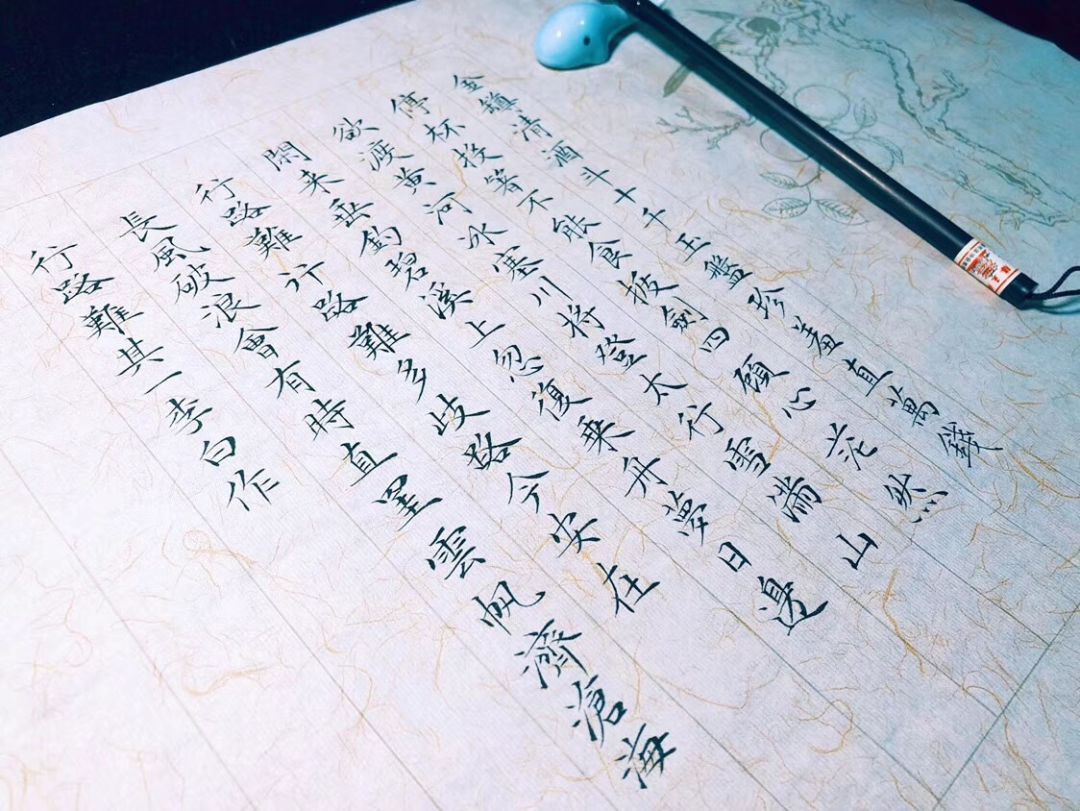 金罇清酒斗十千玉盤珍羞直萬錢
停杯投箸不能食拔劍四顧心茫然
欲渡黄河冰塞川將登太行雪滿山
閑来垂釣碧溪上忽復乗舟夢日邊
行路難行路難多歧路今安在
長風破浪會有時直罣雲帆濟滄海
行路難其一李白作